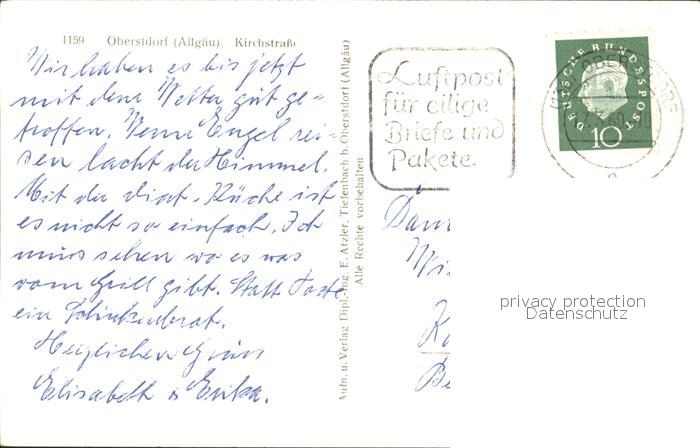 1159 Oberstdorf (Allgäu). Kirchstraße
Wir haben es bis jetzt
mit dem Wetter gut ge=
troffen. Wenn Engel rei=
sen lacht der Himmel.
Mit der diät. Küche ist
es nicht so einfach. Ich
muss sehen wo es was
vom Grill gibt. Statt Torte
ein Schinkenbrot.
Herzlichen Gruss
Elisabeth u Erika.
Aufn. u. Verlag Dipl.-Ing. E. Atzler, Tiefenbach b. Oberstdorf (Allgäu)
Alle Rechte vorbehalten
Luftpost
für eilige
Briefe und
Pakete
DEUTSCHE BUNDESPOST
10
privacy protection
Datenschutz